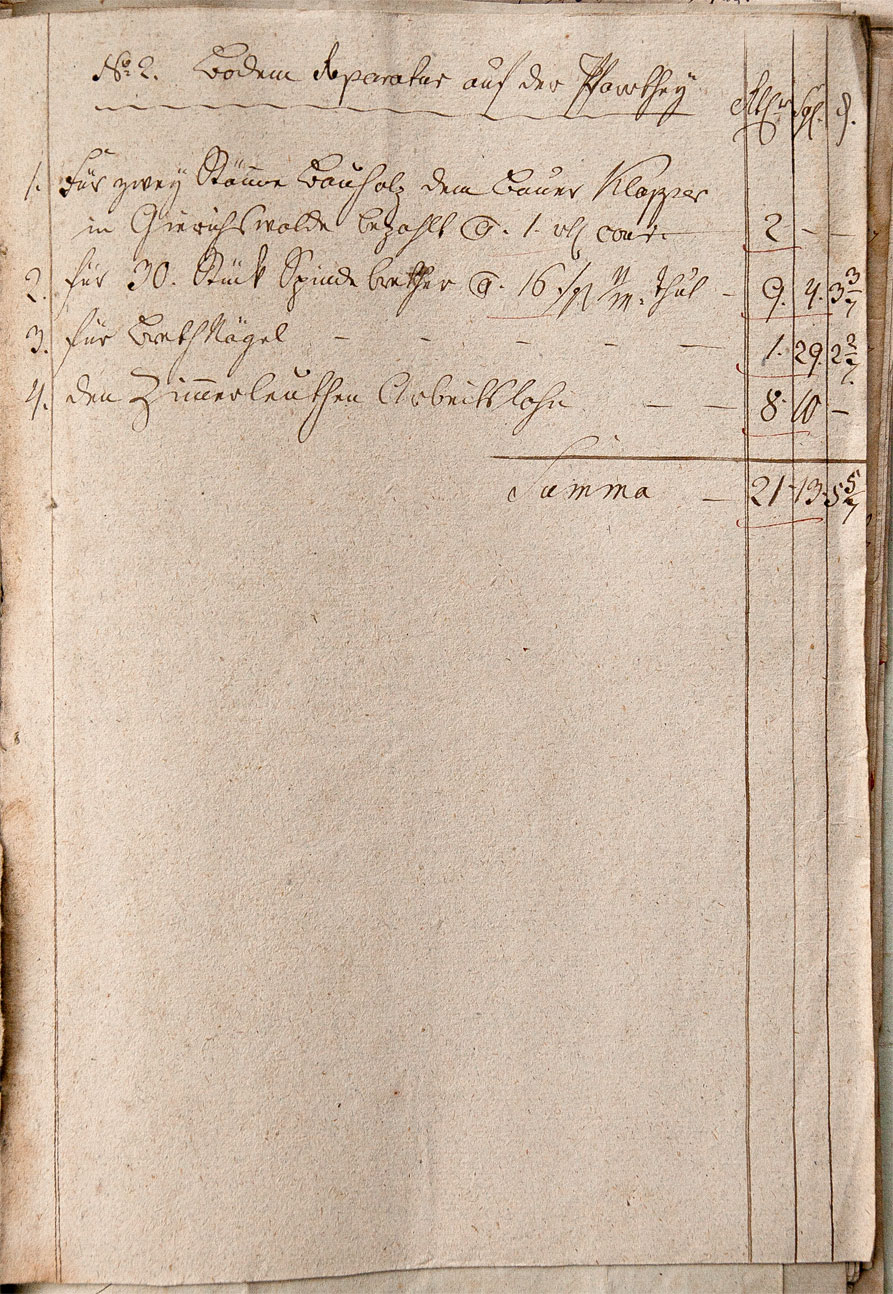 No 2. Bodem Reparatur auf der Pfarthey
Rthlr Sgl. d.
1. Für zwey Stämme Bauholz dem Bauer Klapper
in Gierichswalde bezahlt a. 1. rtl cour. 2 - -
2. für 30. Stück Spinde brether a. 16 9. 4. 3 3/7
3. für BrethNägel - - - - - 1. 29. 2 2/7.
4. den Zimmerleuthen Arbeitslohn - - 8. 10 -
Summa - 21. 13. 5 5/7